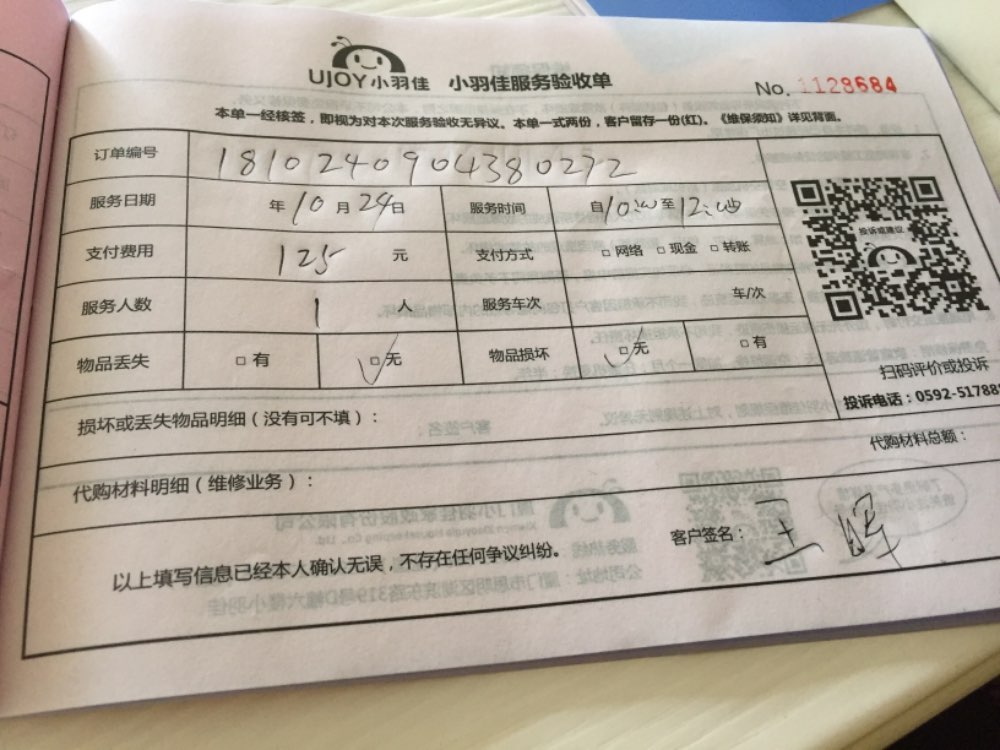 UJOY小羽佳 小羽佳服务验收单 No. 1128684
本单一经核签，即视为对本次服务验收无异议。本单一式两份，客户留存一份(红)。《维保须知》详见背面。
订单编号 1810240904380272
服务日期 年10月24日 服务时间 自10:00至12:00
支付费用 125 元 支付方式 □网络 □现金 □转账
投诉或建议
服务人数 1 人 服务车次 车/次
物品丢失 □有 □无 物品损坏 □无 □有
扫码评价或投诉
投诉电话：0592-51788
损坏或丢失物品明细（没有可不填）：
代购材料总额：
代购材料明细（维修业务）：
客户签名：王晖
以上填写信息已经本人确认无误，不存在任何争议纠纷。